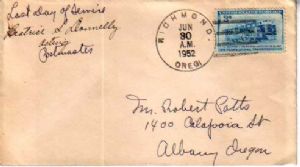 Last Day of Service
Beatrice L Donnelly
Acting
Postmaster
RICHMOND,
JUN
30
A.M.
1952
OREG.
Mr. Robert Potts
1400 Calapooia St
Albany Oregon